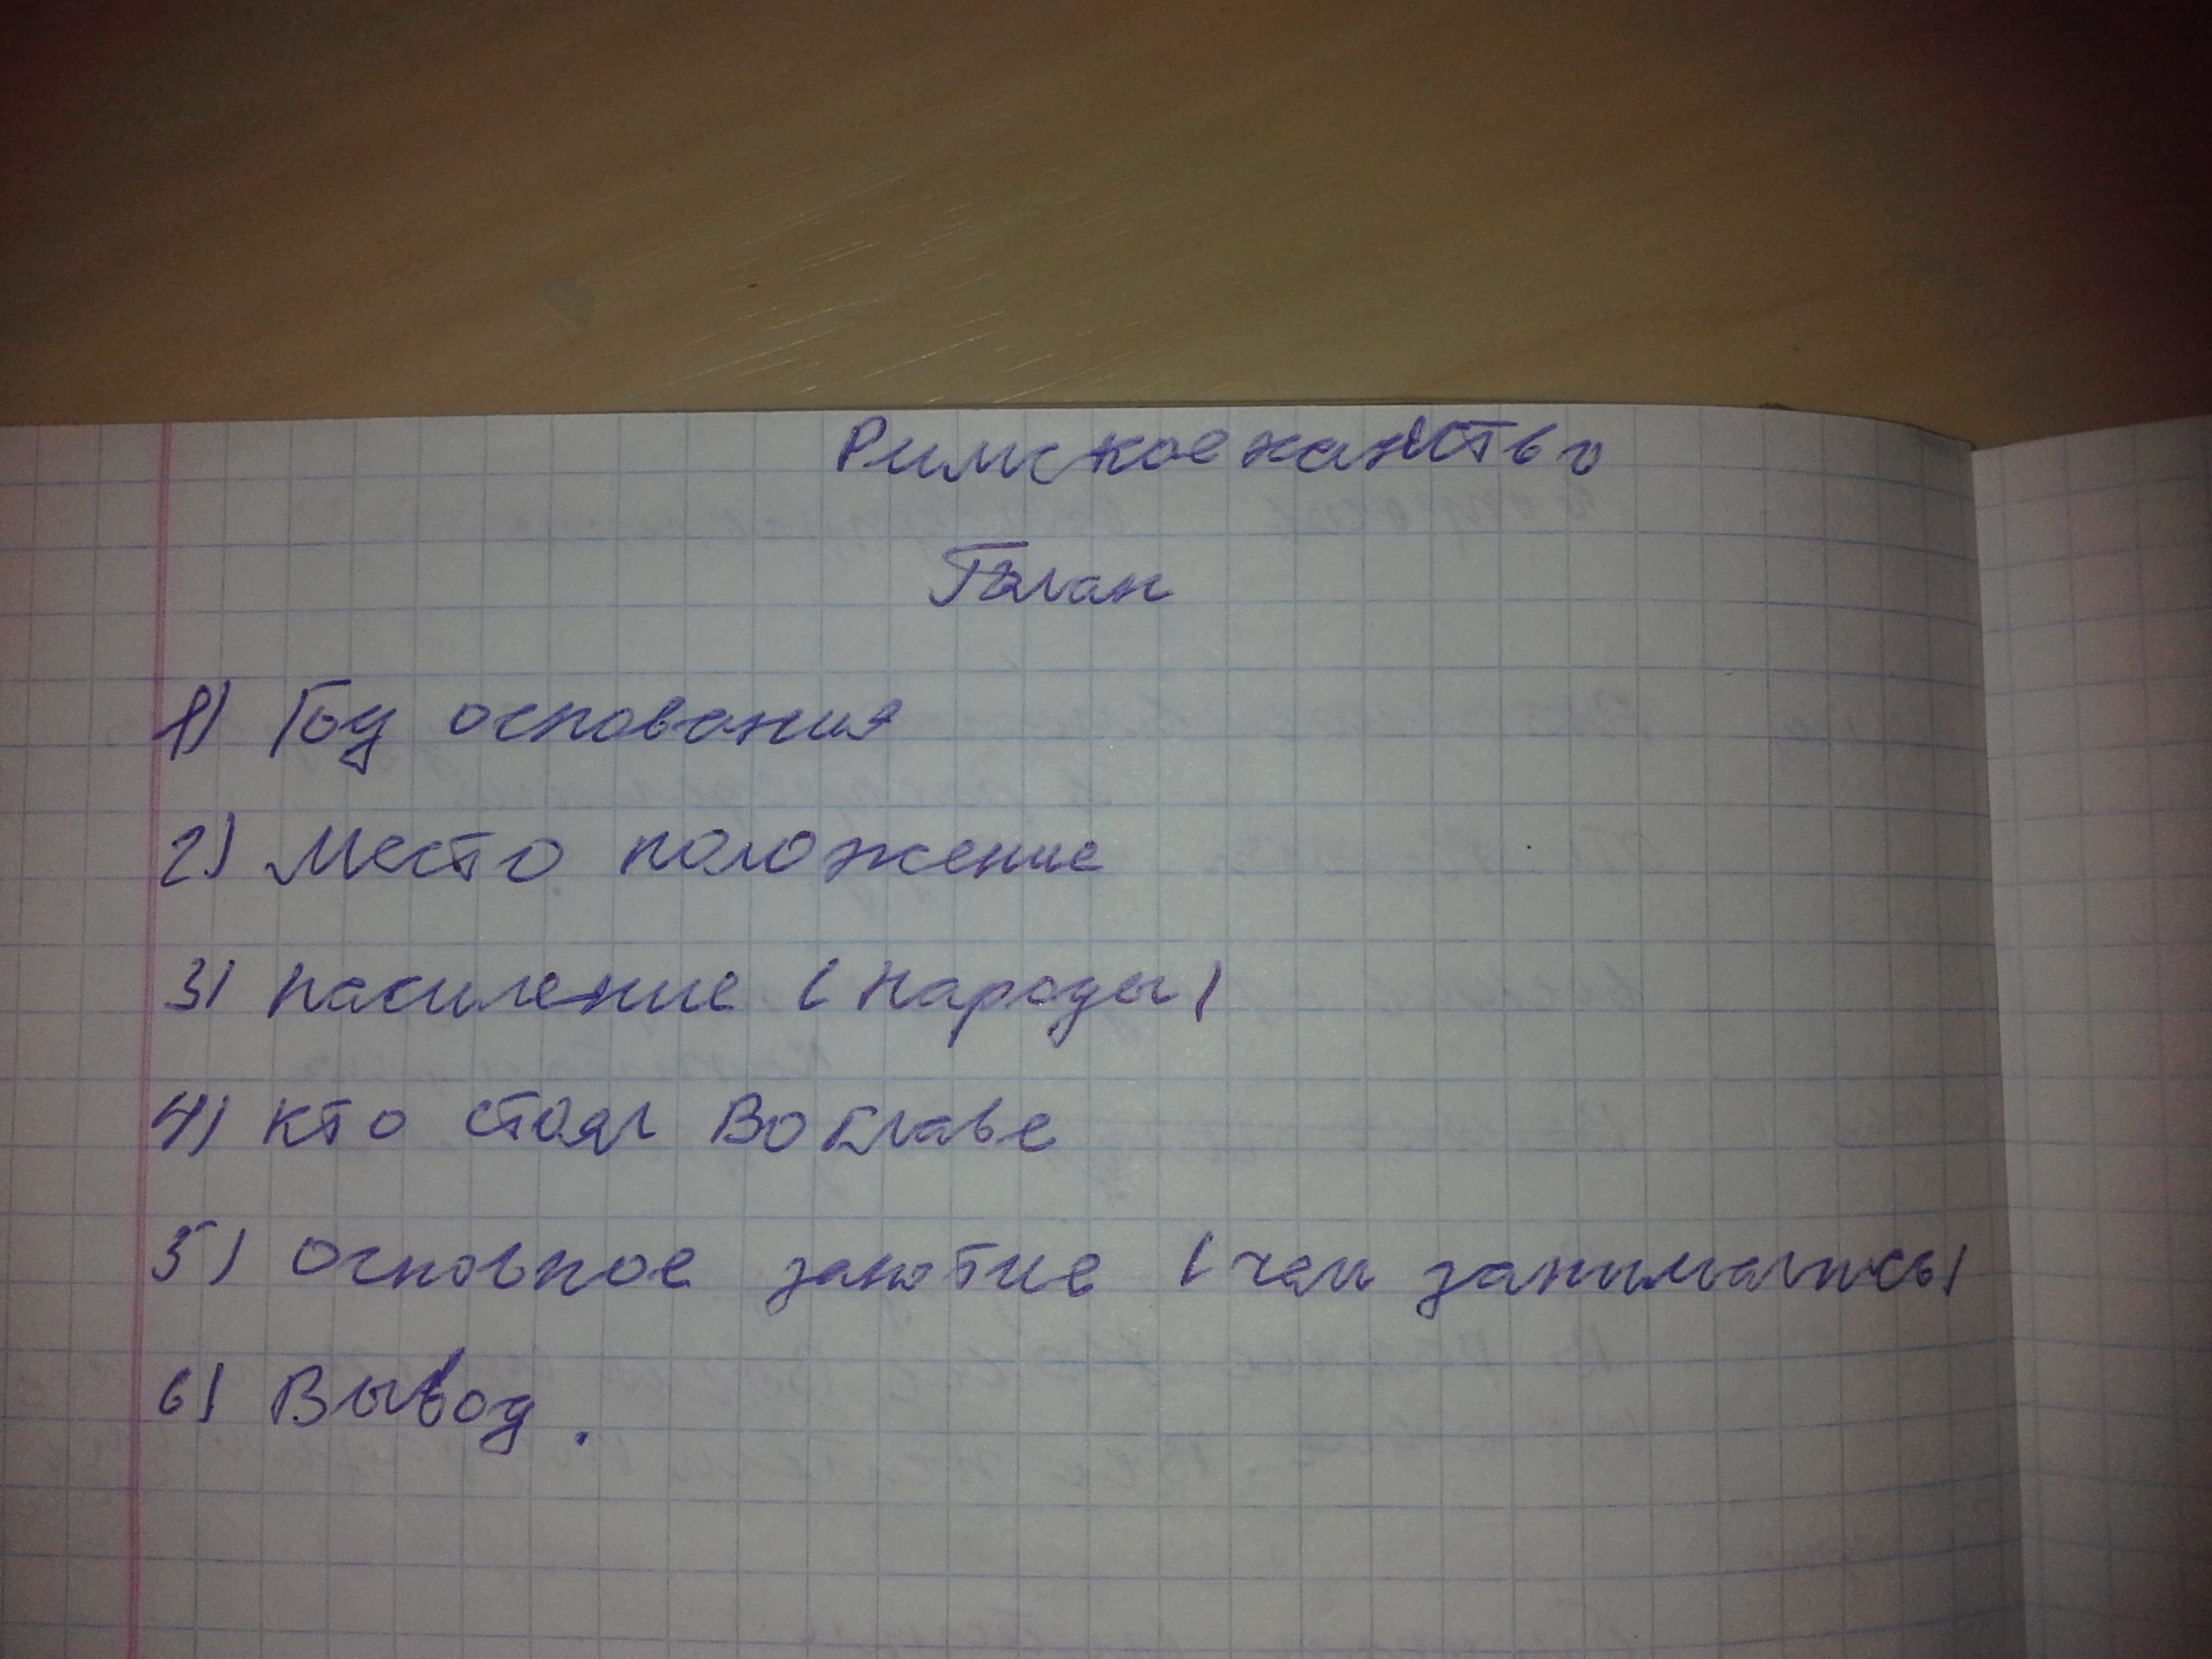 Римское ханство
План
1) Год основания
2) Место положение
3) насиление (народы)
4) кто стоял во главе
5) основное занятие (чем занимались)
6) Вывод.